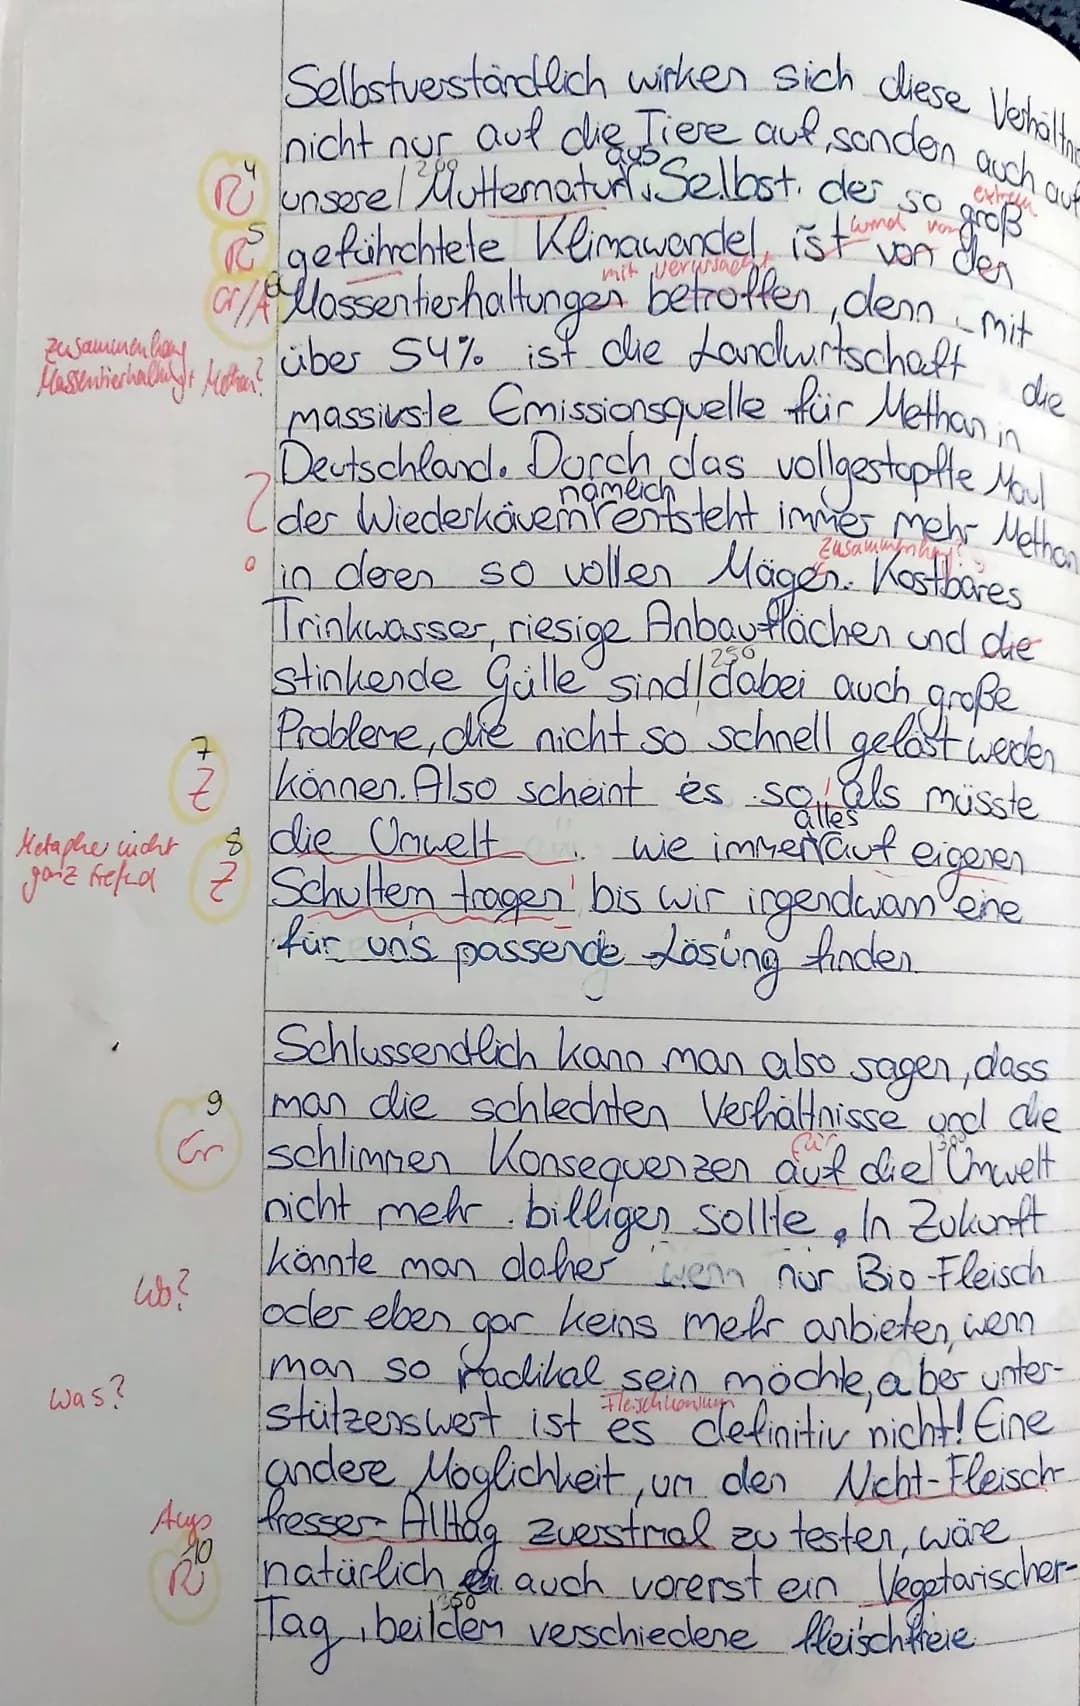 Selbstverständlich wirken sich diese
nicht nur auf die Tiere auf, sondern auch auf
aus
200
extrem
R 4
unsere Mutternatur. Selbst der so groß
wird von
R 5
geführchtete Klimawandel, ist von den
mit verursacht
Gr/A 6
Massentierhaltungen betroffen, denn mit
Zusammenhang
Massentierhaltung + Methan?
über 54% ist die Landwirtschaft die
massivste Emissionsquelle für Methan in
Deutschland. Durch das vollgestopfte Maul
nämlich
?
der Wiederkäuern entsteht immer mehr Methan
Zusammenhang?
in deren so vollen Mägen. Kostbares
Trinkwasser, riesige Anbauflächen und die
250
stinkende Gülle sind dabei auch große
Probleme, die nicht so schnell gelöst werden
7
Z
können. Also scheint es so, als müsste
alles
Metapher nicht
ganz
8
Z
die Umwelt wie immer auf eigenen
Schultern tragen bis wir irgendwann eine
für uns passende Lösung finden
Schlussendlich kann man also sagen, dass
9
man die schlechten Verhältnisse und die
für
300
Gr
schlimmen Konsequenzen auf die Umwelt
nicht mehr billigen sollte. In Zukunft
könnte man daher wenn nur Bio-Fleisch
Wo?
oder eben gar keins mehr anbieten, wenn
man so radikal sein möchte, aber unter-
Was?
Fleischkonsum
stützenswert ist es definitiv nicht! Eine
andere Möglichkeit, um den Nicht-Fleisch-
fresser-Alltag zuerstmal zu testen, wäre
10
R
natürlich auch vorerst ein Vegetarischer-
350
Tag, bei dem verschiedene fleischfreie